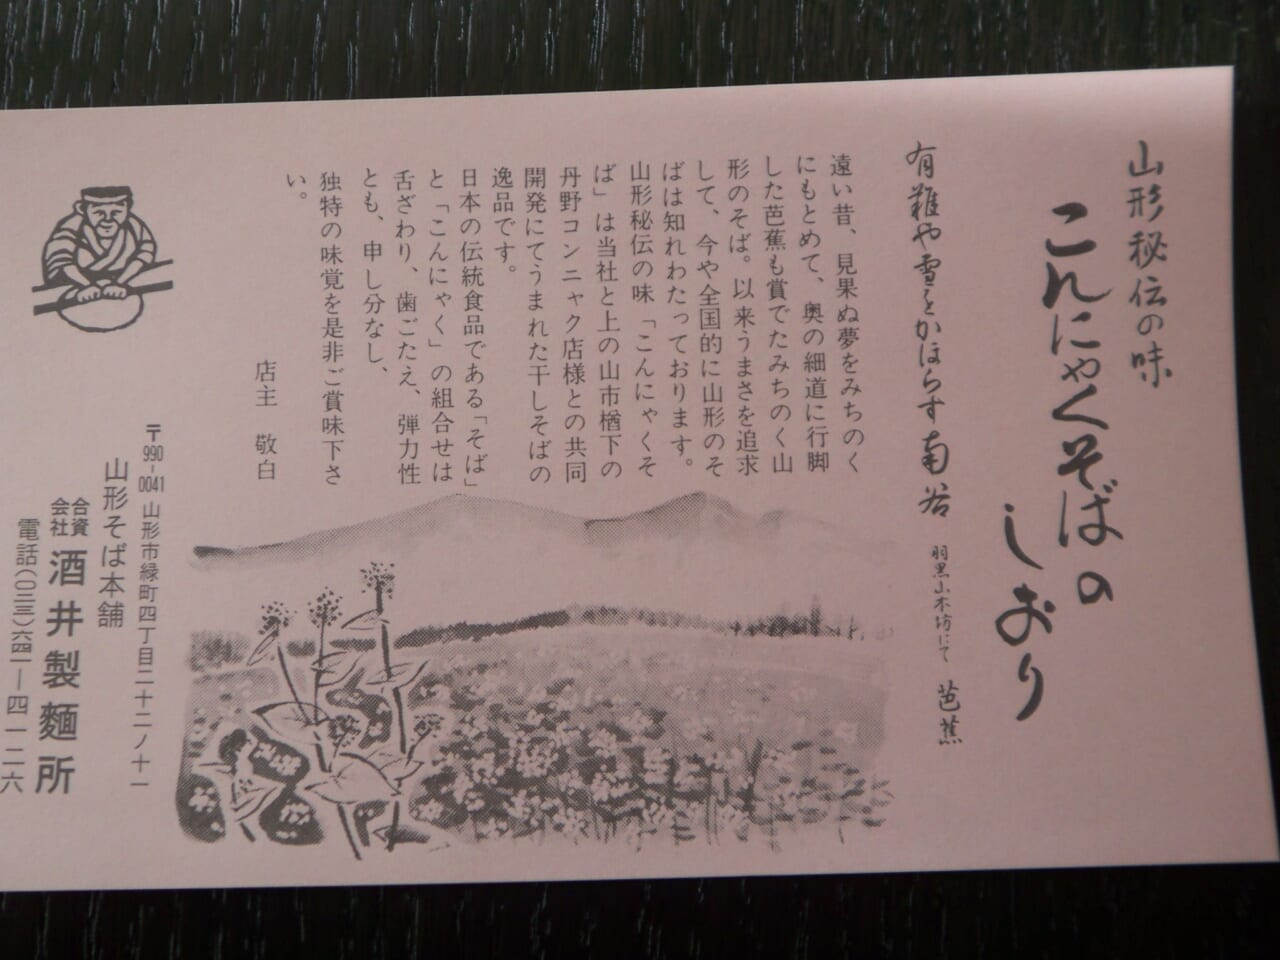 山形秘伝の味
こんにゃくそばの
しおり
有難や雪をかほらす南谷
羽黒山本坊にて 芭蕉
遠い昔、見果ぬ夢をみちのく
にもとめて、奥の細道に行脚
した芭蕉も賞でたみちのく山
形のそば。以来うまさを追求
して、今や全国的に山形のそ
ばは知れわたっております。
山形秘伝の味「こんにゃくそ
ば」は当社と上の山市楢下の
丹野コンニャク店様との共同
開発にてうまれた干しそばの
逸品です。
日本の伝統食品である「そば」
と「こんにゃく」の組合せは
舌ざわり、歯ごたえ、弾力性
とも、申し分なし、
独特の味覚を是非ご賞味下さ
い。
店主 敬白
〒990-0041 山形市緑町四丁目二十二ノ十一
山形そば本舗
合資会社 酒井製麵所
電話(〇二三)六四一-四一二六